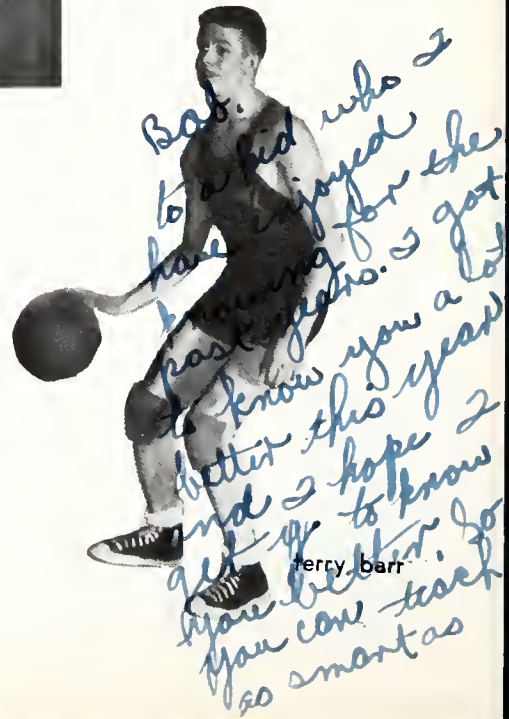 Bob.
to a kid who I
have enjoyed
knowing for the
past years. I got
to know you a lot
better this year
and I hope I
get to know
you better. So
you can teach
so smart as
terry barr